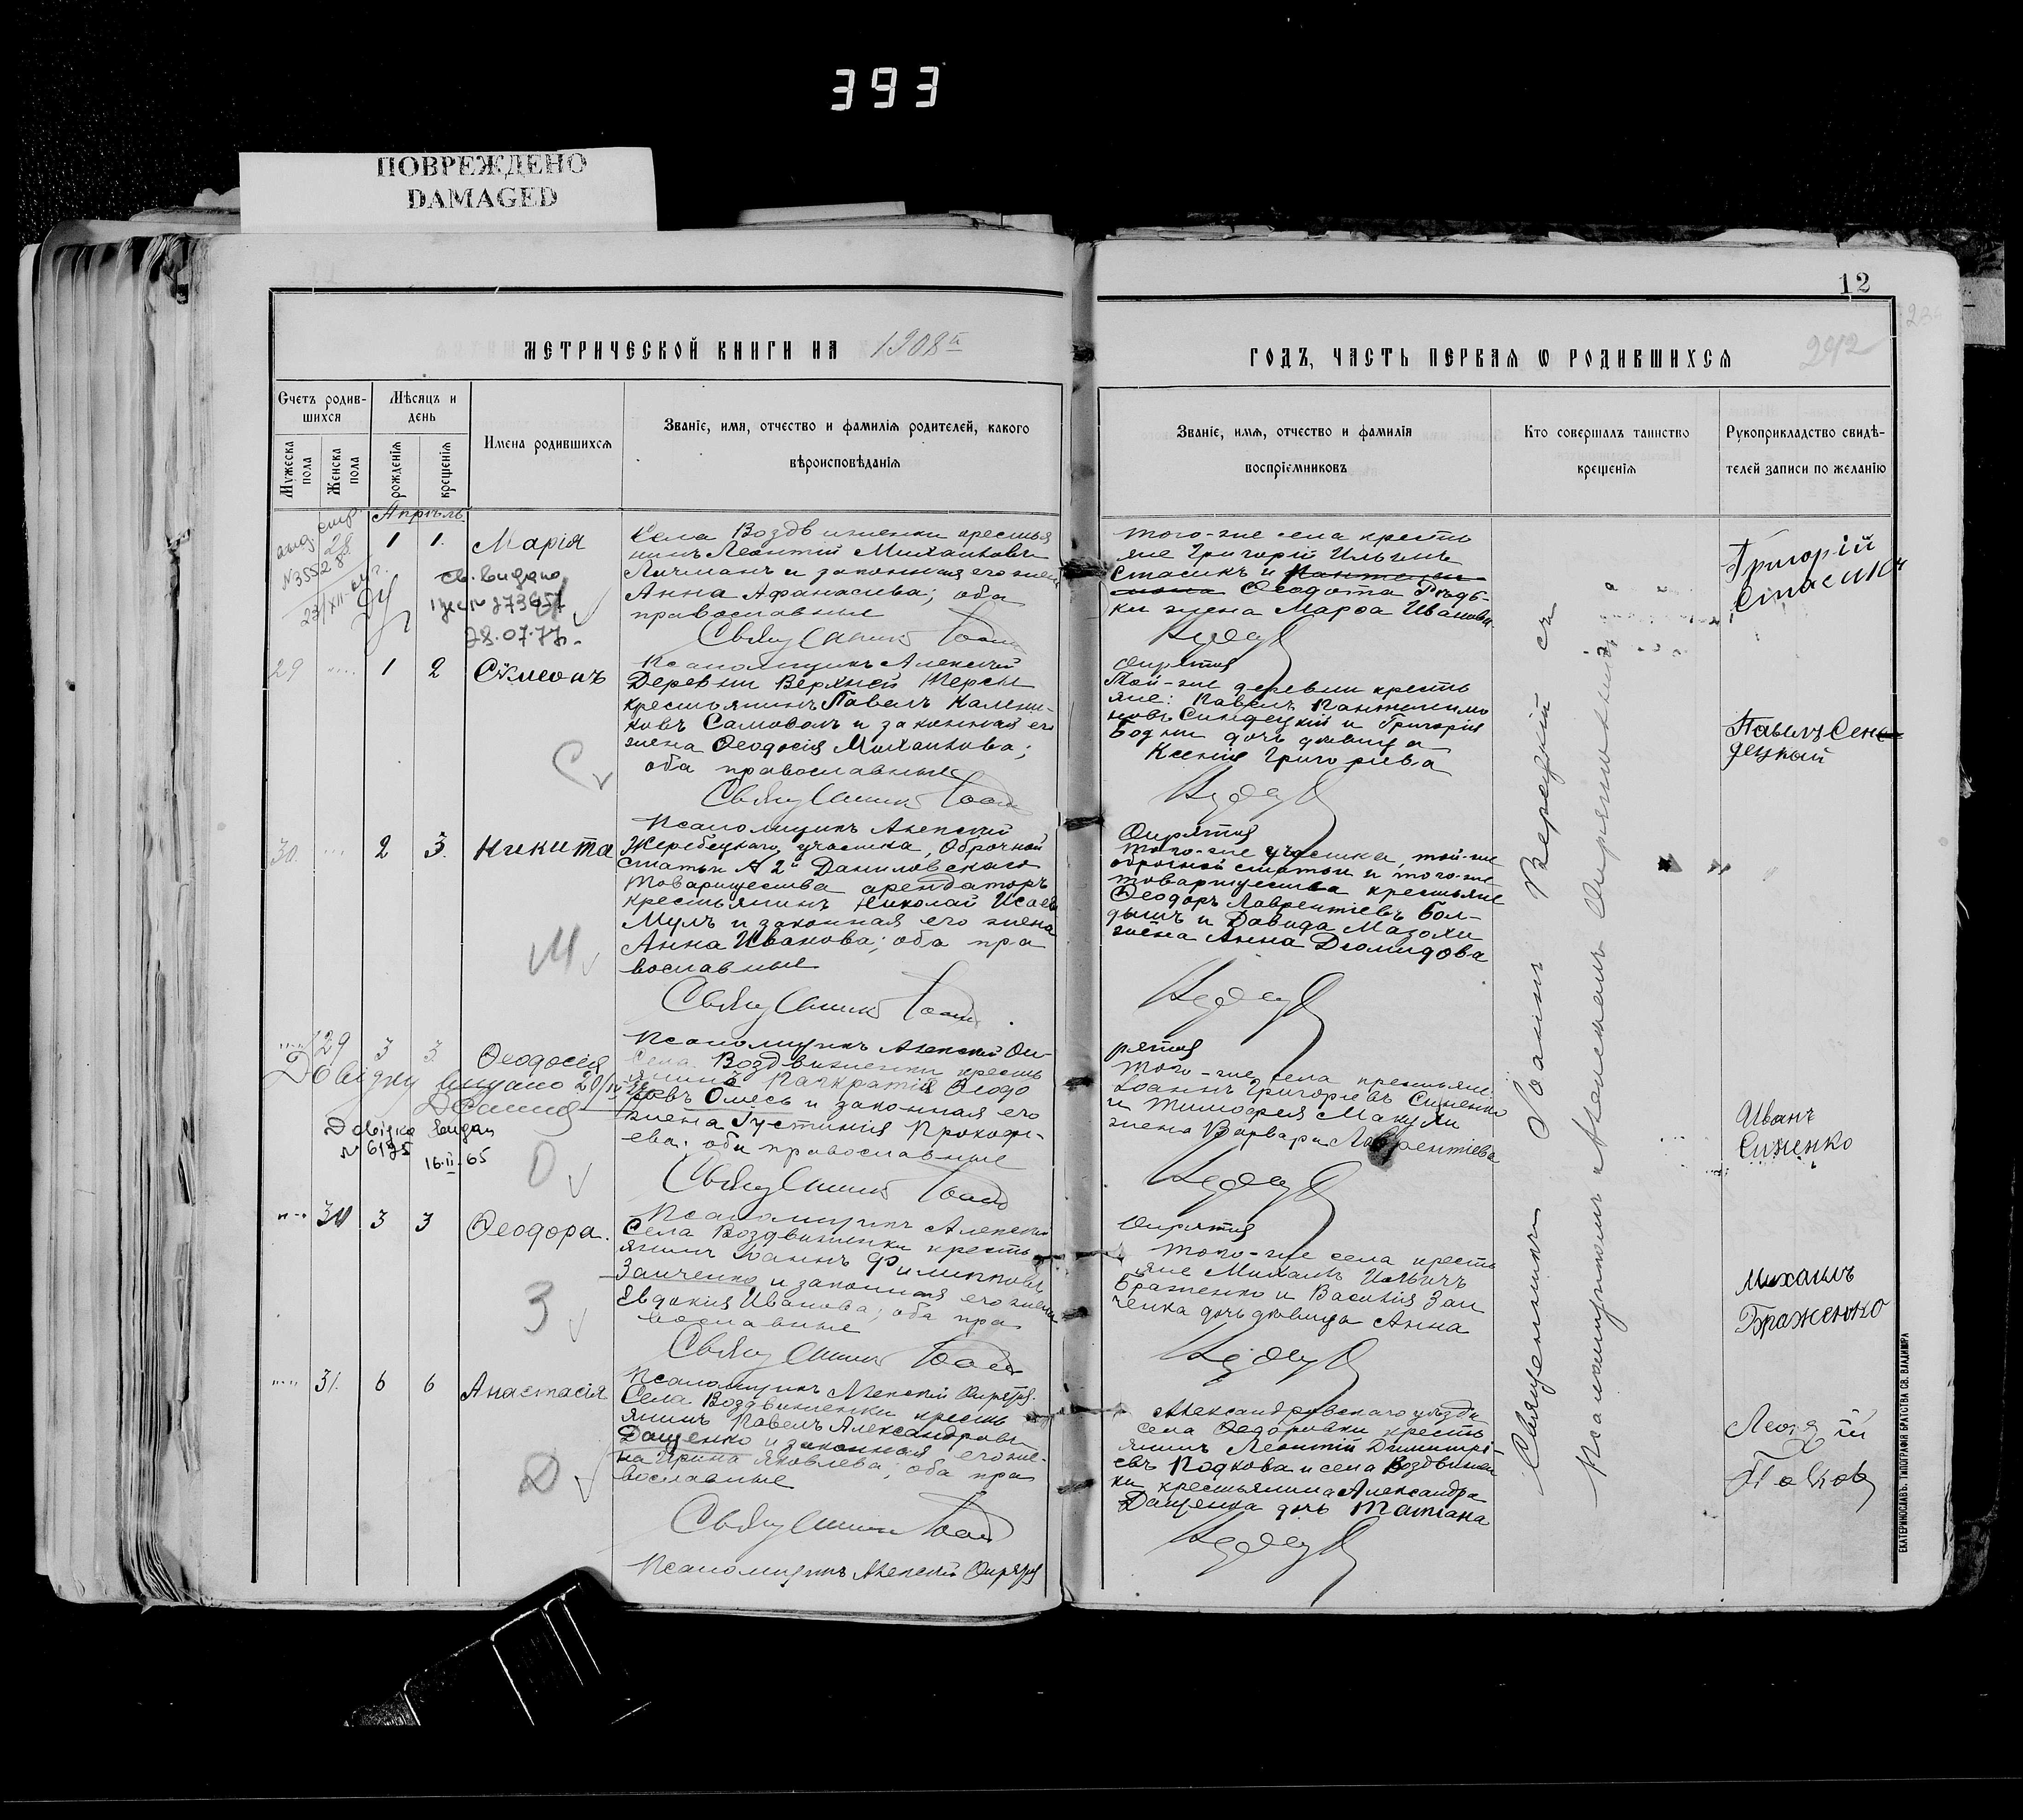 393
ПОВРЕЖДЕНО
DAMAGED
12
МЕТРИЧЕСКОЙ КНИГИ НА 1908й
ГОДЪ, ЧАСТЬ ПЕРВАЯ Ѡ РОДИВШИХСЯ
292
Счетъ родив-
шихся
Мужеска пола
Женска пола
Мѣсяцъ и
день
рожденія
крещенія
Имена родившихся
Званіе, имя, отчество и фамилія родителей, какого
вѣроисповѣданія
Званіе, имя, отчество и фамилія
воспріемниковъ
Кто совершалъ таинство
крещенія
Рукоприкладство свидѣ-
телей записи по желанію
Апрѣль
28 1 1. Марія
св. видано
28.07.77
Села Воздвиженки крестья
нинъ Леонтій Михаиловъ
Личманъ и законная его жена
Анна Афанасьева; оба
православные
Священникъ Іоан
Псаломщикъ Алексій
того-же села кресть
яне Григорій Ильинъ
Стасикъ и
Ѳеодота Гладь-
ки жена Марѳа Иванова
Опрятня
Григорій
Стасикъ
29 1 2 Сѷмеонъ
Деревни Верхней Терсы
крестьянинъ Павелъ Калини-
ковъ Самоволъ и законная его
жена Ѳеодосія Михаилова;
оба православные
Священникъ Іоан
Псаломщикъ Алексій
Той-же деревни кресть
яне: Павелъ Пантелимо
новъ Синдецкій и Григорія
Бодни дочь дѣвица
Ксенія Григорьева
Опрятня
Павелъ Сен
децкый
30. 2 3. Никита
Жеребецкаго участка, Оброчной
статьи № 2й Даниловскаго
Товарищества арендаторъ
крестьянинъ Николай Исаевъ
Мулъ и законная его жена
Анна Иванова; оба пра
вославные
Священникъ Іоан
Псаломщикъ Алексій Оп-
того-же участка, той-же
оброчной статьи и того-же
товарищества крестьяне
Ѳеодоръ Лаврентіевъ Бол-
дышъ и Давида Мазохи
жена Анна Діомидова
рятня
29 3 3 Ѳеодосія
Довідку видано
Довідка видан
№ 6175
16.II.65
Села Воздвиженки кресть
янинъ Панкратій Ѳеодо
ровъ Омесь и законная его
жена Іустинія Прокофі-
ева; оба православные
Священникъ Іоан
Псаломщикъ Алексій
Того-же села крестьяне:
Іоаннъ Григорьевъ Синенко
и Тимоѳея Макухи
жена Варвара Лаврентіева
Опрятня
Иванъ
Сиженко
30 3 3 Ѳеодора.
Села Воздвиженки кресть
янинъ Іоаннъ Филипповъ
Заиченко и законная его жена
Евдокія Иванова; оба пра
вославные
Священникъ Іоан
Псаломщикъ Алексій Опрятня
Того-же села кресть
яне Михаилъ Ильичъ
Браженко и Василія Заи
ченка дочь дѣвица Анна
Михаилъ
Браженко
31. 6 6 Анастасія
Села Воздвиженки кресть
янинъ Павелъ Александровъ
Дащенко и законная его же-
на Ирина Яковлева; оба пра
вославные
Священникъ Іоан
Псаломщикъ Алексій Опрятня
Александровскаго уѣзда
села Ѳедоровки кресть
янинъ Леонтій Димитрі-
евъ Подкова и села Воздвижен
ки крестьянина Александра
Дащенка дочь Татіана
Священникъ Іоаннъ Верецкій съ
псаломщикомъ Алексіемъ Опрятнымъ
ЕКАТЕРИНОСЛАВЪ. ТИПОГРАФІЯ БРАТСТВА СВ. ВЛАДИМІРА